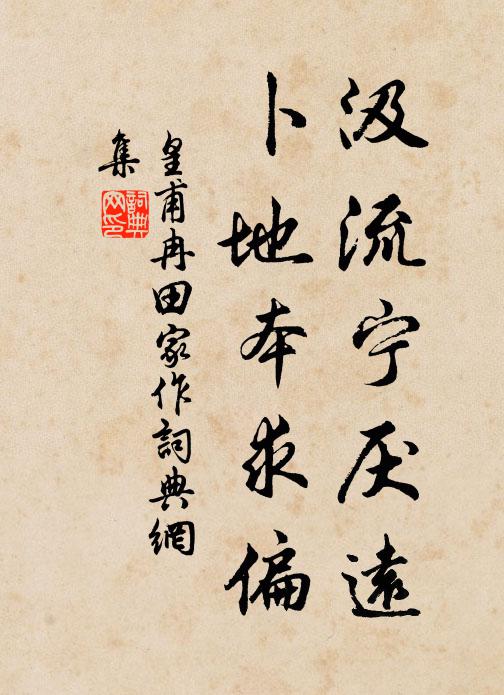 汲流宁厌远
卜地本求偏
皇甫冉田家作詞典網
集
詞典网印